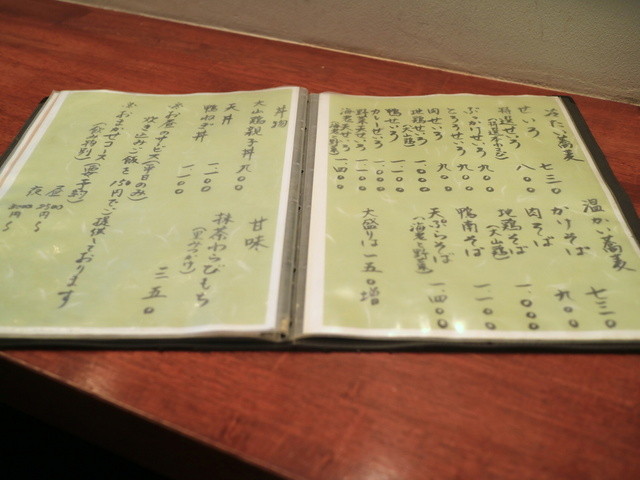 冷たい蕎麦
せいろ 七三〇
特選せいろ 八〇〇
ぶっかけせいろ 九〇〇
とろろせいろ 九〇〇
肉せいろ 一〇〇〇
地鶏せいろ
(大山鶏) 一〇〇〇
鴨せいろ 一一〇〇
カレーせいろ 一一〇〇
野菜天せいろ 一一〇〇
海老天せいろ
(海老と野菜) 一四〇〇
温かい蕎麦
かけそば 七三〇
肉そば 九〇〇
地鶏そば
(大山鶏) 一〇〇〇
鴨南そば 一一〇〇
天ぷらそば
(海老と野菜) 一四〇〇
大盛りは一五〇増
丼物
大山鶏親子丼 九〇〇
天丼 一一〇〇
鴨ねぎ丼 一一〇〇
※お昼のサービス(平日のみ)
炊き込みご飯を150円でご提供しております
※おまかせコース(要予約)
(飲み物別)
昼 2500円〜
夜 3000円〜
甘味
抹茶わらびもち
三五〇